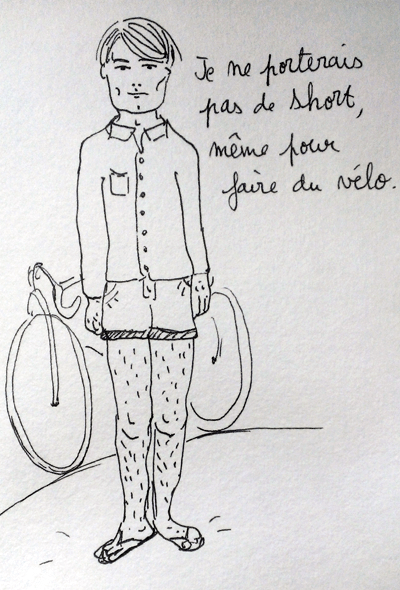 Je ne porterais
pas de short,
même pour
faire du vélo.